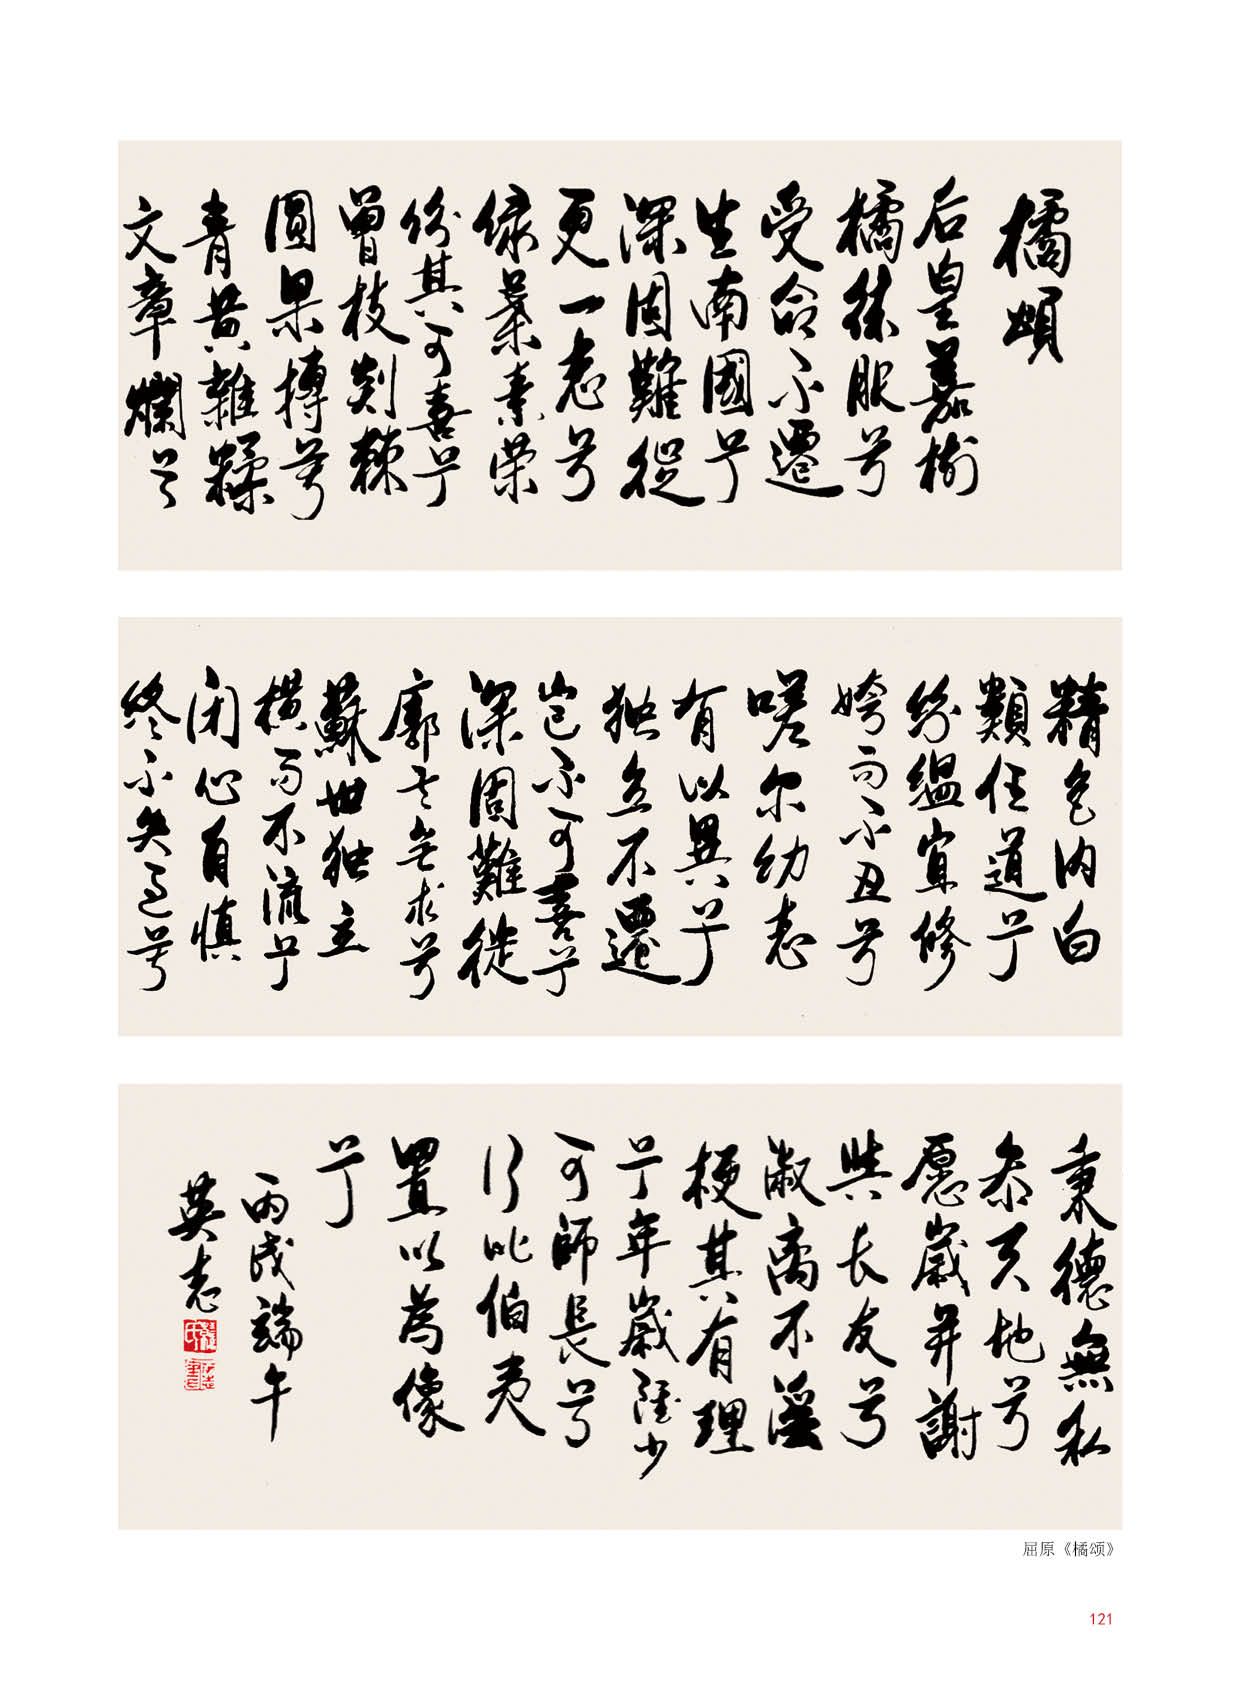 橘頌
后皇嘉樹
橘徕服兮
受命不遷
生南國兮
深固難從
更一志兮
绿葉素榮
纷其可喜兮
曾枝剡棘
圓果摶兮
青黄雜糅
文章爛兮
精色内白
類任道兮
纷緼宜修
姱而不丑兮
嗟尔幼志
有以異兮
独立不遷
岂不可喜兮
深固難徙
廓其無求兮
蘇世独立
横而不流兮
闭心自慎
终不失過兮
秉德無私
参天地兮
愿嵗并謝
與长友兮
淑离不淫
梗其有理
兮年嵗雖少
可師長兮
行比伯夷
置以為像
兮
丙戌端午
英志
屈原《橘颂》
121